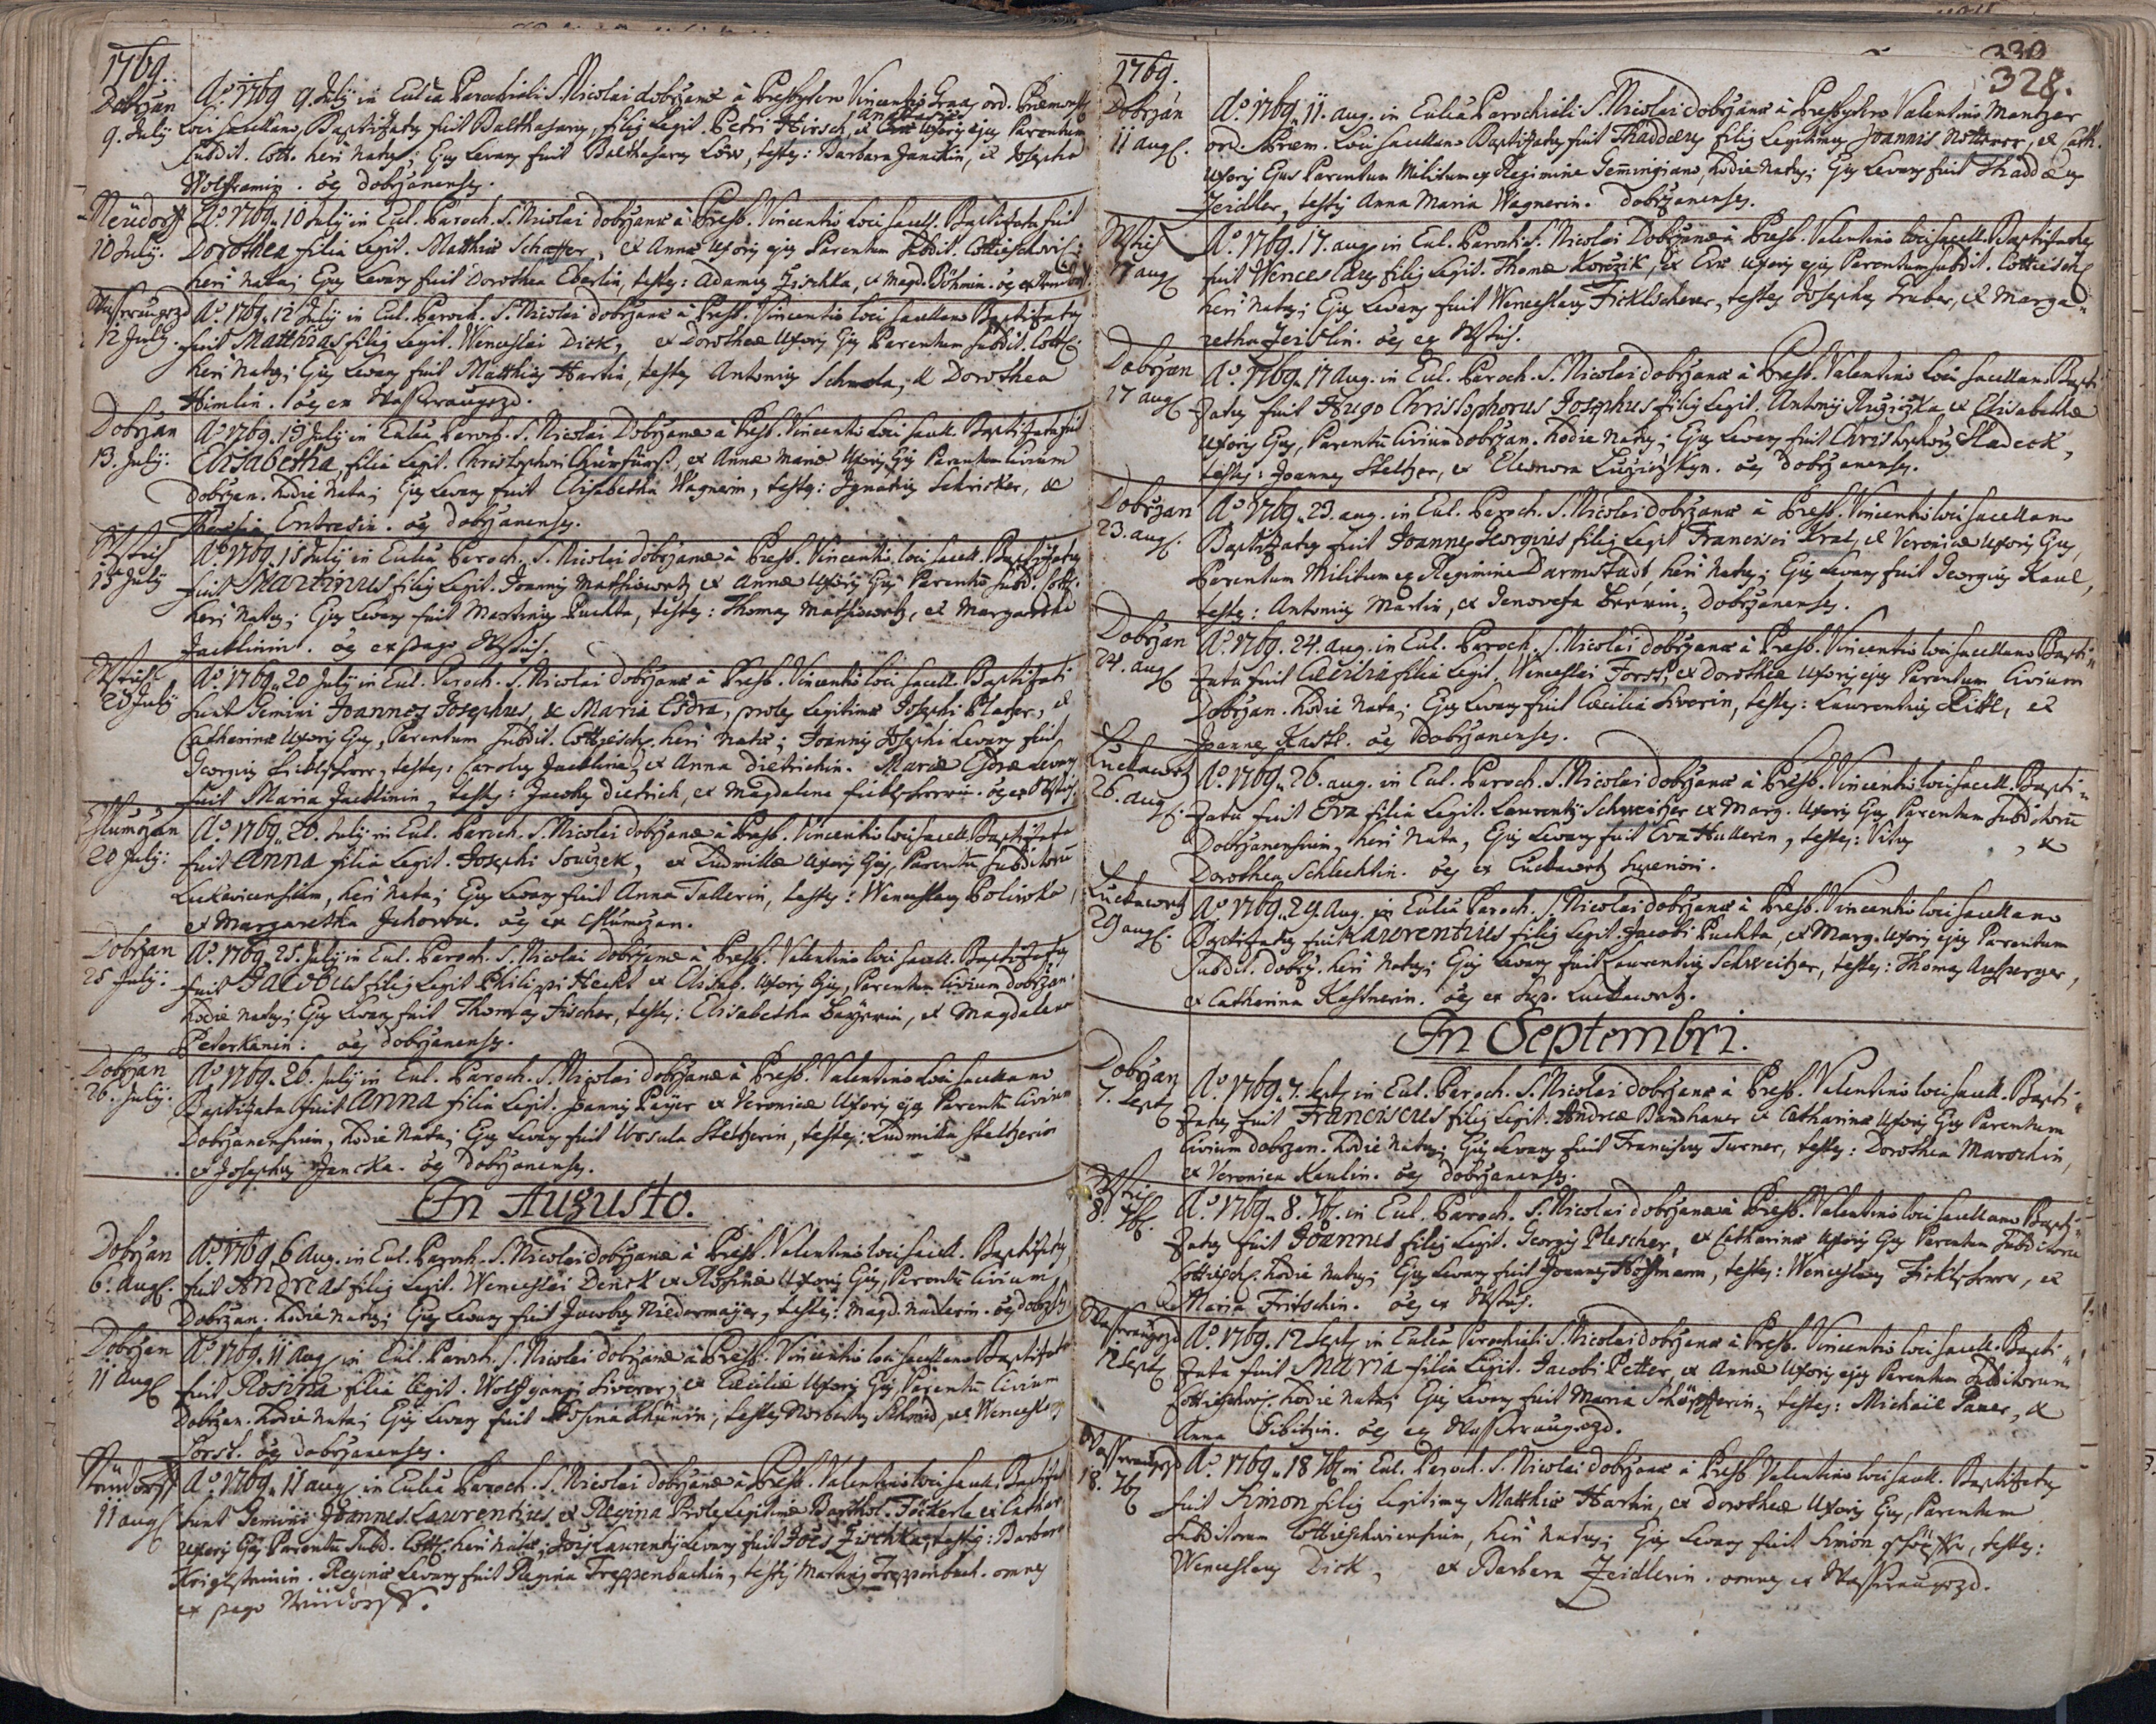 1769.
Dobrzan
9. July
Aº. 1769 9. July in Eccl͞ia Parochiali S. Nicolai dobrzanæ à Presbytero Vincentio Graas ord. Præmonst.
loci sacellano, Baptizatus fuit Balthasarus, filius Legit. Petri Hirsch, et Annæ Mariæ Uxoris ejus Parentum
Subdit. Cott. heri Natus; Ejus Levans fuit Balthasarus Löw, testes: Barbara Janckin, et Josepha
Wolframin. oēs dobrzanenses.
Neüdorff
10 July.
Aº. 1769. 10 July in Eccl. Paroch. S. Nicolai dobrzanæ à Presb. Vincentio loci sacell. Baptizata fuit
Dorothea filia Legit. Matthiæ Schaffer, et Annæ Uxoris ejus Parentum Subdit. Cottieschovis:
heri Nata; Ejus Levans fuit Dorothea Eberlin, testes: Adamus Zischka, et Magd. Böhmin. oēs ex Neudorff.
Wasseraugezd
12 July.
Aº. 1769. 12 July in Eccl. Paroch. S. Nicolai dobrzanæ à Presb. Vincentio loci sacellano Baptizatus
fuit Matthias filius Legit. Wenceslai Dick, et Dorotheæ Uxoris Ejus Parentum Subdit. Cotts.
heri Natus; Ejus Levans fuit Matthias Hartin, testes Antonius Schmola, et Dorothea
Himlin. oēs ex Wasseraugezd.
Dobrzan
13. July.
Aº 1769. 13 July in Eccl͞ia Paroch. S. Nicolai Dobrzanæ à Presb. Vincentio loci sacell. Baptizata fuit
Elisabetha, filia Legit. Christophori Churfürst, et Annæ Mariæ Uxoris Ejus Parentum Civium
Dobrzan. hodie Nata; Ejus Levans fuit Elisabetha Wagnerin, testes: Ignatius Schricker, et
Theresia Entresin. oēs dobrzanenses.
Wstisch
15 July
Aº. 1769. 15 July in Eccl͞ia Paroch. S. Nicolai dobrzanæ à Presb. Vincentio loci sacell. Baptizatus
fuit Martinus, filius Legit. Joannis Mathiowetz et Annæ Uxoris Ejus Parentū Subd. Cott.
heri Natus; Ejus Levans fuit Martinus Puchta, testes: Thomas Mathiowetz, et Margaretha
Jacklinin. oēs ex pago Wstisch.
Wstisch
20 July
Aº. 1769. 20 July in Eccl. Paroch. S. Nicolai dobrzanæ à Presb. Vincentio loci sacell. Baptizati
sunt Gemini Joannes Josephus, et Maria Esdra, proles Legitimæ Josephi Plager, et
Catharinæ Uxoris Ejus, Parentum Subdit. Cottiesch. heri Natæ; Joannis Josephi Levans fuit
Georgius Ficklscherer, testes: Carolus Jacklina, et Anna Dietrichin. Mariæ Esdræ Levans
fuit Maria Jacklinin, testes: Jacobus Dietrich, et Magdalena Ficklscherrin. oēs ex Wstisch.
Chlumczan
20 July:
Aº. 1769. 20. July in Eccl. Paroch. S. Nicolai dobrzanæ à Presb. Vincentio loci sacell. Baptizata
fuit Anna filia Legit. Josephi Souczek, et Ludmillæ Uxoris Ejus, Parentū Subditorū
Lukavicensium, heri Nata; Ejus Levans fuit Anna Tallerin, testes: Wenceslaus Polivka,
et Margaretha Jahorka. oēs ex Chlumczan.
Dobrzan
25 July:
Aº. 1769. 25. July in Eccl. Paroch. S. Nicolai Dobrzanæ à Presb. Valentino loci sacell. Baptizatus
fuit Jacobus filius Legit Philippi Heckl et Elisab. Uxoris Ejus, Parentum Civium dobrzan.
hodie Natus; Ejus Levans fuit Thomas Fischer, testes: Elisabetha Bayerin, et Magdalena
Peterkanin: oēs dobrzanenses.
Dobrzan
26. July.
Aº 1769. 26. July in Eccl. Paroch. S. Nicolai dobrzanæ à Presb. Valentino loci sacellano
Baptizata fuit Anna filia Legit. Joannis Payer et Veronicæ Uxoris ejus Parentū Civium
Dobrzanensium, hodie Nata; Ejus Levans fuit Ursula Steltzerin, testes: Ludmilla Steltzerin
et Josephus Jancka. oēs Dobrzanenses.
In Augusto.
Dobrzan
6. Augs.
Aº. 1769. 6 Aug. in Eccl. Paroch. S. Nicolai dobrzanæ à Presb. Valentino loci sacell. Baptizatus
fuit Andreas filius Legit. Wenceslai Denck et Rosinæ Uxoris Ejus, Parentū Civium
Dobrzan. hodie Natus; Ejus Levans fuit Jacobus Niedermayer, testes: Magd. Nadlerin. oēs dobrzs.
Dobrzan
11 Augs
Aº. 1769. 11 Aug. in Eccl. Paroch. S. Nicolai dobrzanæ à Presb. Vincentio loci sacellano Baptizata
fuit Rosina filia Legit. Wolfgangi Siverer, et Cæciliæ Uxoris Ejus, Parentū Civium
Dobrzan. hodie Nata; Ejus Levans fuit Rosina Khünin, testes Norbertus Schmid, et Wenceslaus
Forst. oēs dobrzanenses.
Neüdorff
11 augs
Aº. 1769. 11 aug. in Eccl͞ia Paroch. S. Nicolai dobrzanæ à Presb. Valentino loci sacell. Baptizati
sunt Gemini Joannes Laurentius et Regina Prole Legitimæ Barthol. Föckerle et Cathar.
Uxoris Ejus Parentū Subd. Cotts. heri Natæ; Jōis Laurentii Levans fuit Jōes Zischka, testes: Barbara
Krigelsteinin. Reginæ Levans fuit Regina Treppenbachin, testis Martinus Treppenbach. omnes
ex pago Neüdorff.
330
328.
1769.
Dobrzan
11 augs.
Aº. 1769. 11. aug. in Eccl͞ia Parochiali S. Nicolai Dobrzanæ à Presbytero Valentino Mantzer
ord. Præm. loci sacellano Baptizatus fuit Thaddæus filius Legitimus Joannis Notterer, et Cath.
Uxoris Ejus Parentum Militum ex Regimine Gemingiano, hodie Natus; Ejus Levans fuit Thaddæus
Zeidler, testis Anna Maria Wagnerin. Dobrzanenses.
Wstisch
17 augs
Aº. 1769. 17. aug. in Eccl. Paroch. S. Nicolai Dobrzanæ à Presb. Valentino loci sacell. Baptizatus
fuit Wenceslaus filius Legit. Thomæ Korczik, et Evæ Uxoris ejus Parentum Subdit. Cottiesch.
heri Natus; Ejus Levans fuit Wenceslaus Ficklscherer, testes Josephus Gruber, et Marga„
retha Zeidlin. oēs ex Wstisch.
Dobrzan
17 augs
Aº. 1769. 17 Aug. in Eccl. Paroch. S. Nicolai dobrzanæ à Presb. Valentino loci sacellano Bapti„
zatus fuit Hugo Christophorus Josephus filius Legit. Antonii Ruziczka et Elisabethæ
Uxoris Ejus, Parentū Civium dobrzan. hodie Natus; Ejus Levans fuit Christophorus Hladeck,
testes: Joannes Steltzer, et Eleonora Luziczkyn. oēs Dobrzanenses.
Dobrzan
23. augs.
Aº. 1769. 23. aug. in Eccl. Paroch. S. Nicolai dobrzanæ à Presb. Vincentio loci sacellano
Baptizatus fuit Joannes Georgius filius Legit Francisci Kral, et Veronicæ Uxoris Ejus,
Parentum Militum ex Regimine Darmstadt, heri Natus; Ejus Levans fuit Georgius Kaul,
testes: Antonius Martin, et Jenovefa Berrin, Dobrzanenses.
Dobrzan
24. augs
Aº. 1769. 24. aug. in Eccl. Paroch. S. Nicolai dobrzanæ à Presb. Vincentio loci sacellano Bapti„
zata fuit Cæcilia filia Legit. Wenceslai Forst, et Dorotheæ Uxoris ejus Parentum Civium
Dobrzan. hodie Nata; Ejus Levans fuit Cæcilia Siverin, testes: Laurentius Rittl, et
Joannes Kastl. oēs Dobrzanenses.
Luckawetz
26. augs.
Aº. 1769. 26. aug. in Eccl. Paroch. S. Nicolai dobrzanæ à Presb. Vincentio loci sacell. Bapti„
zata fuit Eva filia Legit. Laurentii Schweitzer et Marg. Uxoris Ejus Parentum Subditorū
Dobrzanensium, heri Nata, Ejus Levans fuit Eva Hullerin, testes: Vitus , et
Dorothea Schlechtin. oēs ex Luckawetz superiori.
Luckawetz
29 augs.
Aº. 1769. 29. Aug. in Eccl͞ia Paroch. S. Nicolai dobrzanæ à Presb. Vincentio loci sacellano
Baptizatus fuit Laurentius filius Legit. Jacobi Puchta, et Marg. Uxoris ejus Parentum
Subdit. dobrz. heri Natus; Ejus Levans fuit Laurentius Schweitzer, testes: Thomas Auszperger,
et Catharina Kastnerin. oēs ex Sup. Luckawetz.
In Septembri.
Dobrzan
7. Septs
Aº. 1769. 7. Septs in Eccl. Paroch. S. Nicolai dobrzanæ à Presb. Valentino loci sacell. Bapti„
zatus fuit Franciscus filius Legit. Andreæ Bandhauer et Catharinæ Uxoris Ejus Parentum
Civium dobrzan. hodie Natus; Ejus Levans fuit Franciscus Turner, testes: Dorothea Maroschin,
et Veronica Kaulin. oēs dobrzanenses.
Wstis
8. 7bs.
Aº. 1769. 8. 7bs. in Eccl. Paroch. S. Nicolai dobrzanæ à Presb. Valentino loci sacellano Bapti„
zatus fuit Joannes filius Legit. Georgii Plescher, et Catharinæ Uxoris Ejus Parentum Subditorū
Cottiesch. hodie Natus; Ejus Levans fuit Joannes Hoffmann, testes: Wenceslaus Ficklscherer, et
Maria Fritschin. oēs ex Wstisch.
Wasseraugezd
12 Septs
Aº. 1769. 12 Septs in Eccl͞ia Parochiali S. Nicolai dobrzanæ à Presb. Vincentio loci sacell. Bapti„
zata fuit Maria filia Legit. Jacobi Petter, et Annæ Uxoris ejus Parentum Subditorum
Cottieschov. hodie Nata; Ejus Levans fuit Maria Schöpfferin, testes: Michaël Paner, et
Anna Gibitzin. oēs ex Wasseraugezd.
Wasseraugezd
18. 7bs
Aº. 1769. 18 7bs in Eccl. Paroch. S. Nicolai dobrzanæ à Presb Valentino loci sacell. Baptizatus
fuit Simon filius Legitimus Matthiæ Hartin, et Dorotheæ Uxoris Ejus, Parentum
Subditorum Cottieschoviensium, heri Natus; Ejus Levans fuit Simon Schöpffer, testes:
Wenceslaus Dick, et Barbara Zeidlerin. omnes ex Wasseraugezd.